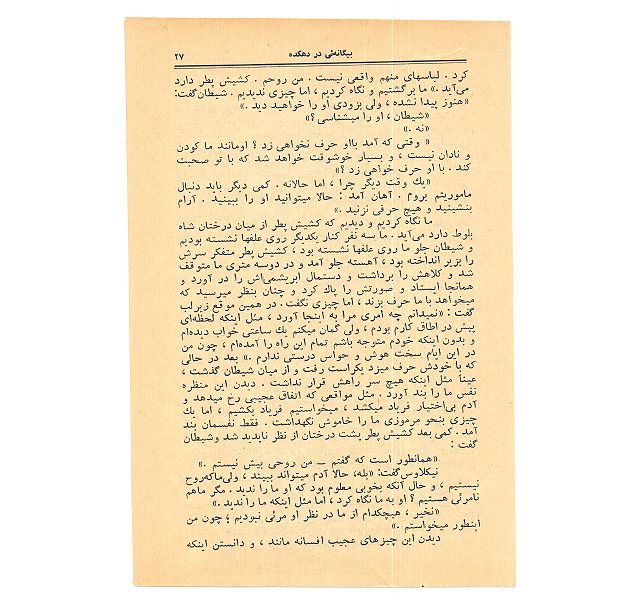 بیگانه‌ئی در دهکده
۲۷
کرد . لباسهای منهم واقعی نیست . من روحم . کشیش پطر دارد
می‌آید .» ما برگشتیم و نگاه کردیم ، اما چیزی ندیدیم . شیطان‌گفت:
«هنوز پیدا نشده ، ولی بزودی او را خواهید دید .»
«شیطان ، او را میشناسی ؟»
«نه .»
« وقتی که آمد بااو حرف نخواهی زد ؟ اومانند ما کودن
و نادان نیست ، و بسیار خوشوقت خواهد شد که با تو صحبت
کند . با او حرف خواهی زد ؟»
«یك وقت دیگر چرا ، اما حالانه . کمی دیگر باید دنبال
ماموریتم بروم . آهان آمد : حالا میتوانید او را ببینید . آرام
بنشینید و هیچ حرفی نزنید .»
ما نگاه کردیم و دیدیم که کشیش پطر از میان درختان شاه
بلوط دارد می‌آید . ما سه نفر کنار یکدیگر روی علفها نشسته بودیم
و شیطان جلو ما روی علفها نشسته بود ، کشیش پطر متفکر سرش
را بزیر انداخته بود ، آهسته جلو آمد و در دوسه متری ما متوقف
شد و کلاهش را برداشت و دستمال ابریشمی‌اش را در آورد و
همانجا ایستاد و صورتش را پاك کرد و چنان بنظر میرسید که
میخواهد با ما حرف بزند ، اما چیزی نگفت . در همین موقع زیرلب
گفت : «نمیدانم چه امری مرا به اینجا آورد ، مثل اینکه لحظه‌ای
پیش در اطاق کارم بودم ، ولی گمان میکنم یك ساعتی خواب دیده‌ام
و بدون اینکه خودم متوجه باشم تمام این راه را آمده‌ام ، چون من
در این ایام سخت هوش و حواس درستی ندارم .» بعد در حالی
که با خودش حرف میزد یکراست رفت و از میان شیطان گذشت ،
عیناً مثل اینکه هیچ سر راهش قرار نداشت . دیدن این منظره
نفس ما را بند آورد . مثل مواقعی که اتفاق عجیبی رخ میدهد و
آدم بی‌اختیار فریاد میکشد ، میخواستیم فریاد بکشیم ، اما یك
چیزی بنحو مرموزی ما را خاموش نگهداشت . فقط نفسمان بند
آمد . کمی بعد کشیش پطر پشت درختان از نظر ناپدید شد وشیطان
گفت :
«همانطور است که گفتم ــ من روحی بیش نیستم .»
نیکلاوس‌گفت: «بله، حالا آدم میتواند ببیند ، ولی‌ماکه‌روح
نیستیم ، و حال آنکه بخوبی معلوم بود که او ما را ندید . مگر ماهم
نامرئی هستیم ؟ او به ما نگاه کرد ، اما مثل اینکه ما را ندید .»
«نخیر ، هیچکدام از ما در نظر او مرئی نبردیم ؛ چون من
اینطور میخواستم .»
دیدن این چیزهای عجیب افسانه مانند ، و دانستن اینکه